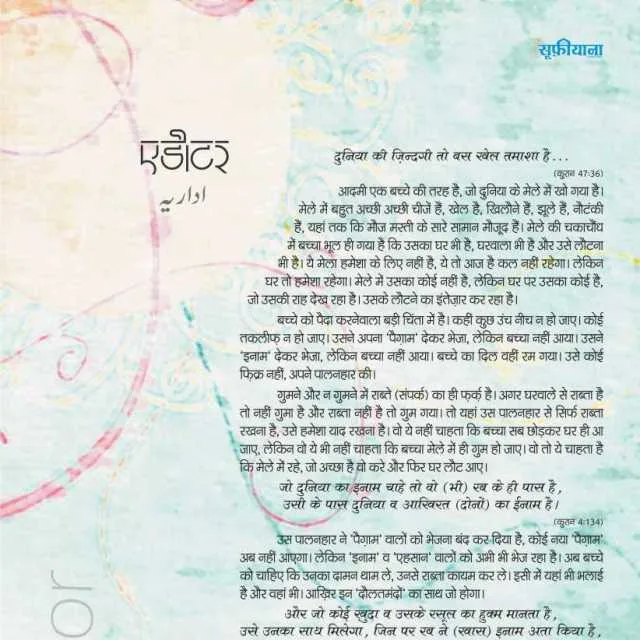 सूफ़ीयाना
एडीटर
اداریہ
दुनिया की ज़िन्दगी तो बस खेल तमाशा है...
(कुरान 47:36)
आदमी एक बच्चे की तरह है, जो दुनिया के मेले में खो गया है।
मेले में बहुत अच्छी अच्छी चीजें हैं, खेल है, खिलौने हैं, झूले हैं, नौटंकी
हैं, यहां तक कि मौज मस्ती के सारे सामान मौजूद हैं। मेले की चकाचौंध
में बच्चा भूल ही गया है कि उसका घर भी है, घरवाला भी है और उसे लौटना
भी है। ये मेला हमेशा के लिए नहीं है, ये तो आज है कल नहीं रहेगा। लेकिन
घर तो हमेशा रहेगा। मेले में उसका कोई नहीं है, लेकिन घर पर उसका कोई है,
जो उसकी राह देख रहा है। उसके लौटने का इंतेज़ार कर रहा है।
बच्चे को पैदा करनेवाला बड़ी चिंता में है। कहीं कुछ उंच नीच न हो जाए। कोई
तकलीफ़ न हो जाए। उसने अपना 'पैग़ाम' देकर भेजा, लेकिन बच्चा नहीं आया। उसने
'इनाम' देकर भेजा, लेकिन बच्चा नहीं आया। बच्चे का दिल वहीं रम गया। उसे कोई
फ़िक्र नहीं, अपने पालनहार की।
गुमने और न गुमने में राब्ते (संपर्क) का ही फ़र्क़ है। अगर घरवाले से राब्ता है
तो नहीं गुमा है और राब्ता नहीं है तो गुम गया। तो यहां उस पालनहार से सिर्फ राब्ता
रखना है, उसे हमेशा याद रखना है। वो ये नहीं चाहता कि बच्चा सब छोड़कर घर ही आ
जाए, लेकिन वो ये भी नहीं चाहता कि बच्चा मेले में ही गुम हो जाए। वो तो ये चाहता है
कि मेले में रहे, जो अच्छा है वो करे और फिर घर लौट आए।
जो दुनिया का इनाम चाहे तो वो (भी) रब के ही पास है,
उसी के पास दुनिया व आखिरत (दोनों) का ईनाम है।
(कुरान 4:134)
उस पालनहार ने 'पैग़ाम' वालों को भेजना बंद कर दिया है, कोई नया 'पैग़ाम'
अब नहीं आएगा। लेकिन 'इनाम' व 'एहसान' वालों को अभी भी भेज रहा है। अब बच्चे
को चाहिए कि उनका दामन थाम ले, उनसे राब्ता कायम कर ले। इसी में यहां भी भलाई
है और वहां भी। आखिर इन 'दौलतमंदों' का साथ जो होगा।
और जो कोई खुदा व उसके रसूल का हुक्म मानता है,
उसे उनका साथ मिलेगा, जिन पर रब ने (खास) इनाम अता किया है,
or